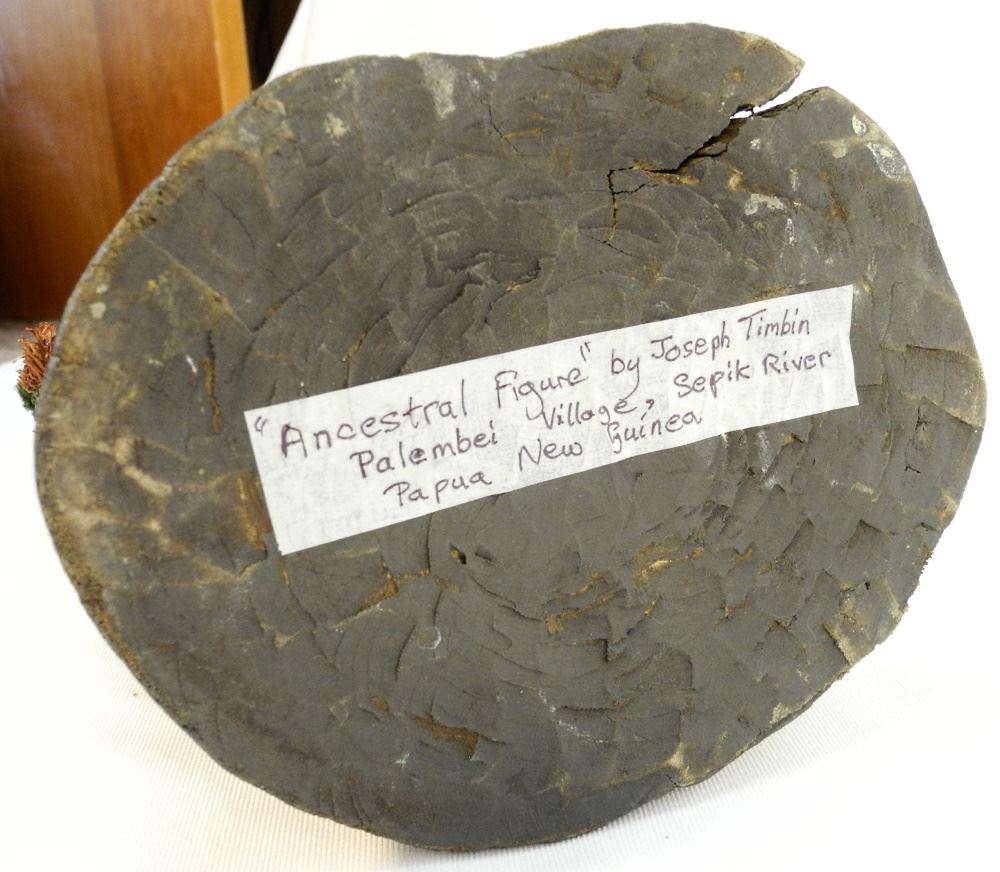 "Ancestral Figure" by Joseph Timbin
Palembei Village, Sepik River
Papua New Guinea